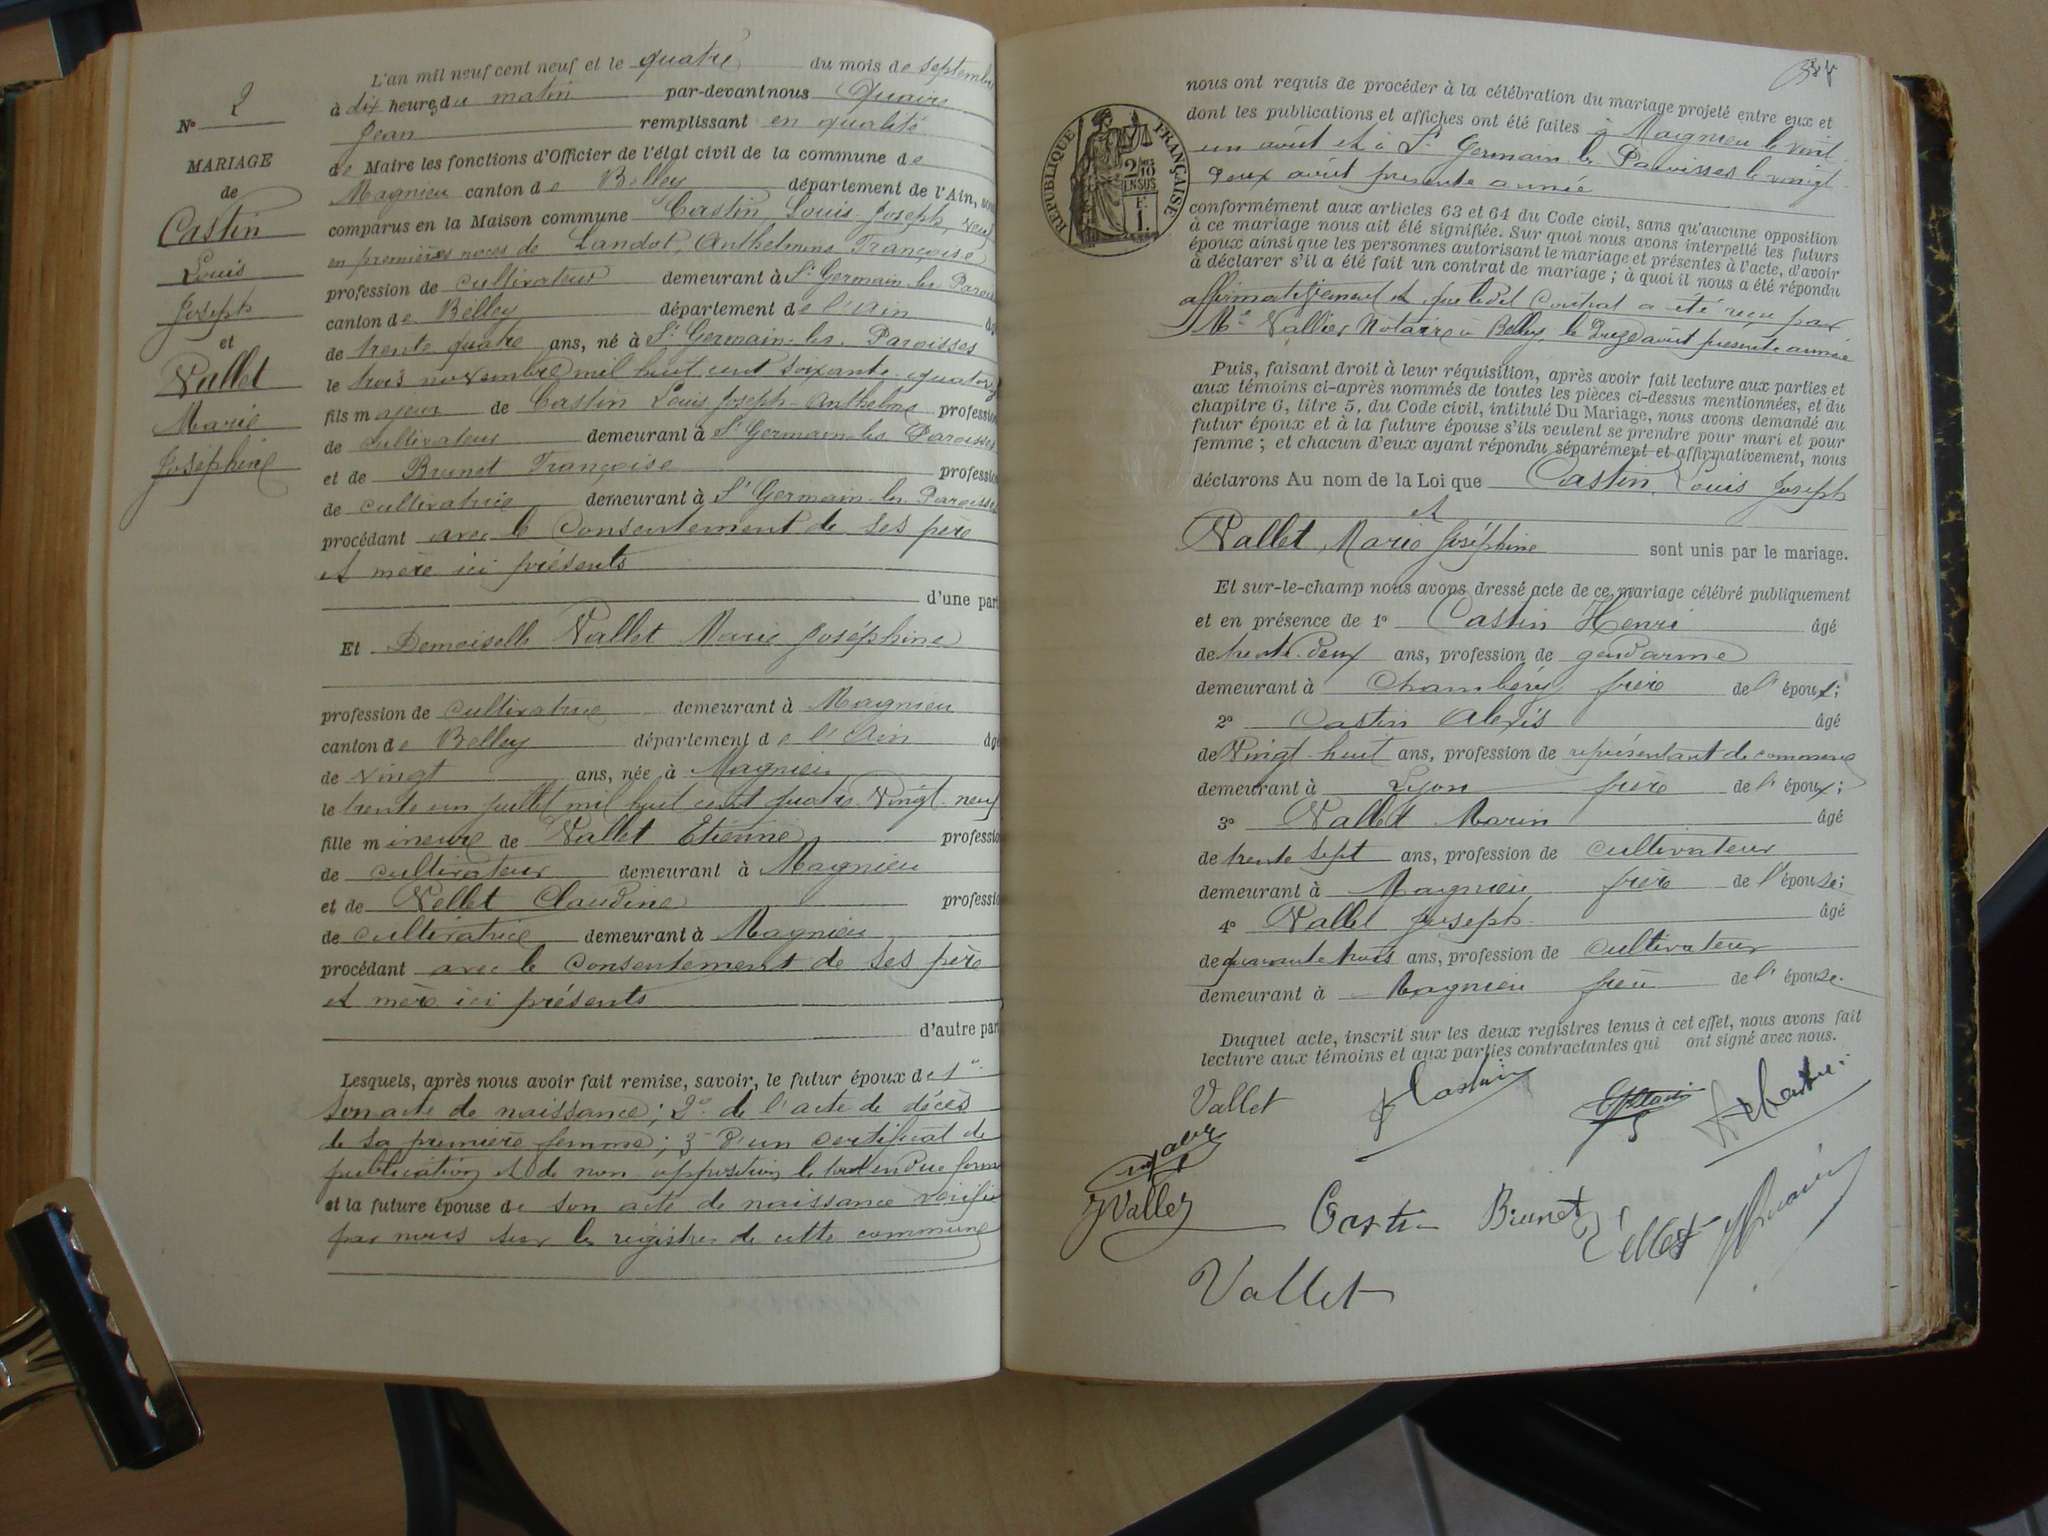 N° 2
MARIAGE
de
Castin
Louis
Joseph
et
Vallet
Marie
Joséphine
L'an mil neuf cent neuf et le quatre du mois de septembre
à dix heures du matin par-devant nous Quaire
Jean remplissant en qualité
de Maire les fonctions d'Officier de l'état civil de la commune de
Magnieu canton de Belley département de l'Ain, sont
comparus en la Maison commune Castin, Louis Joseph, veuf
en premières noces de Landot, Anthelmine Françoise
profession de cultivateur demeurant à St Germain les Paroi
canton de Belley département de l'Ain âgé
de trente quatre ans, né à St Germain-les-Paroisses
le trois novembre mil huit cent soixante-quatorze
fils majeur de Castin Louis Joseph-Anthelme profession
de cultivateur demeurant à St Germain-les Paroisses
et de Brunet Françoise profession
de cultivatrice demeurant à St Germain-les Paroisses
procédant avec le consentement de ses père
et mère ici présents
d'une part
Et Demoiselle Vallet Marie Joséphine
profession de cultivatrice demeurant à Magnieu
canton de Belley département de l'Ain âgé
de vingt ans, née à Magnieu
le trente un juillet mil huit cent quatre-vingt-neuf
fille mineure de Vallet Etienne profession
de cultivateur demeurant à Magnieu
et de Vellet Claudine profession
de cultivatrice demeurant à Magnieu
procédant avec le consentement de ses père
et mère ici présents
d'autre part
Lesquels, après nous avoir fait remise, savoir, le futur époux de 1°
son acte de naissance; 2° de l'acte de décès
de sa première femme; 3° d'un certificat de
publication et de non opposition le tout en due forme
et la future épouse de son acte de naissance vérifié
par nous sur les registres de cette commune
nous ont requis de procéder à la célébration du mariage projeté entre eux et
dont les publications et affiches ont été faites à Magnieu le vint
un août et à St Germain les Paroisses le vingt
deux août présente année
RÉPUBLIQUE FRANÇAISE
2/10
EN SUS
F.
1.
conformément aux articles 63 et 64 du Code civil, sans qu'aucune opposition
à ce mariage nous ait été signifiée. Sur quoi nous avons interpellé les futurs
époux ainsi que les personnes autorisant le mariage et présentes à l'acte, d'avoir
à déclarer s'il a été fait un contrat de mariage; à quoi il nous a été répondu
affirmativement et que ledit contrat a été reçu par
Me Vallier Notaire à Belley, le août présente année
Puis, faisant droit à leur réquisition, après avoir fait lecture aux parties et
aux témoins ci-après nommés de toutes les pièces ci-dessus mentionnées, et du
chapitre 6, titre 5, du Code civil, intitulé Du Mariage, nous avons demandé au
futur époux et à la future épouse s'ils veulent se prendre pour mari et pour
femme; et chacun d'eux ayant répondu séparément et affirmativement, nous
déclarons Au nom de la Loi que Castin, Louis Joseph
et
Vallet, Marie Joséphine sont unis par le mariage.
Et sur-le-champ nous avons dressé acte de ce mariage célébré publiquement
et en présence de 1° Castin Henri âgé
de trente-deux ans, profession de gendarme
demeurant à Chambéry frère de l'époux;
2° Castin Alexis âgé
de vingt-huit ans, profession de représentant de commerce
demeurant à Lyon frère de l'époux;
3° Vallet Marin âgé
de trente sept ans, profession de cultivateur
demeurant à Magnieu frère de l'épouse;
4° Vallet Joseph âgé
de quarante trois ans, profession de cultivateur
demeurant à Magnieu frère de l'épouse.
Duquel acte, inscrit sur les deux registres tenus à cet effet, nous avons fait
lecture aux témoins et aux parties contractantes qui ont signé avec nous.
Vallet
Castin
JVallet
Castin Brunet Vellet
Vallet